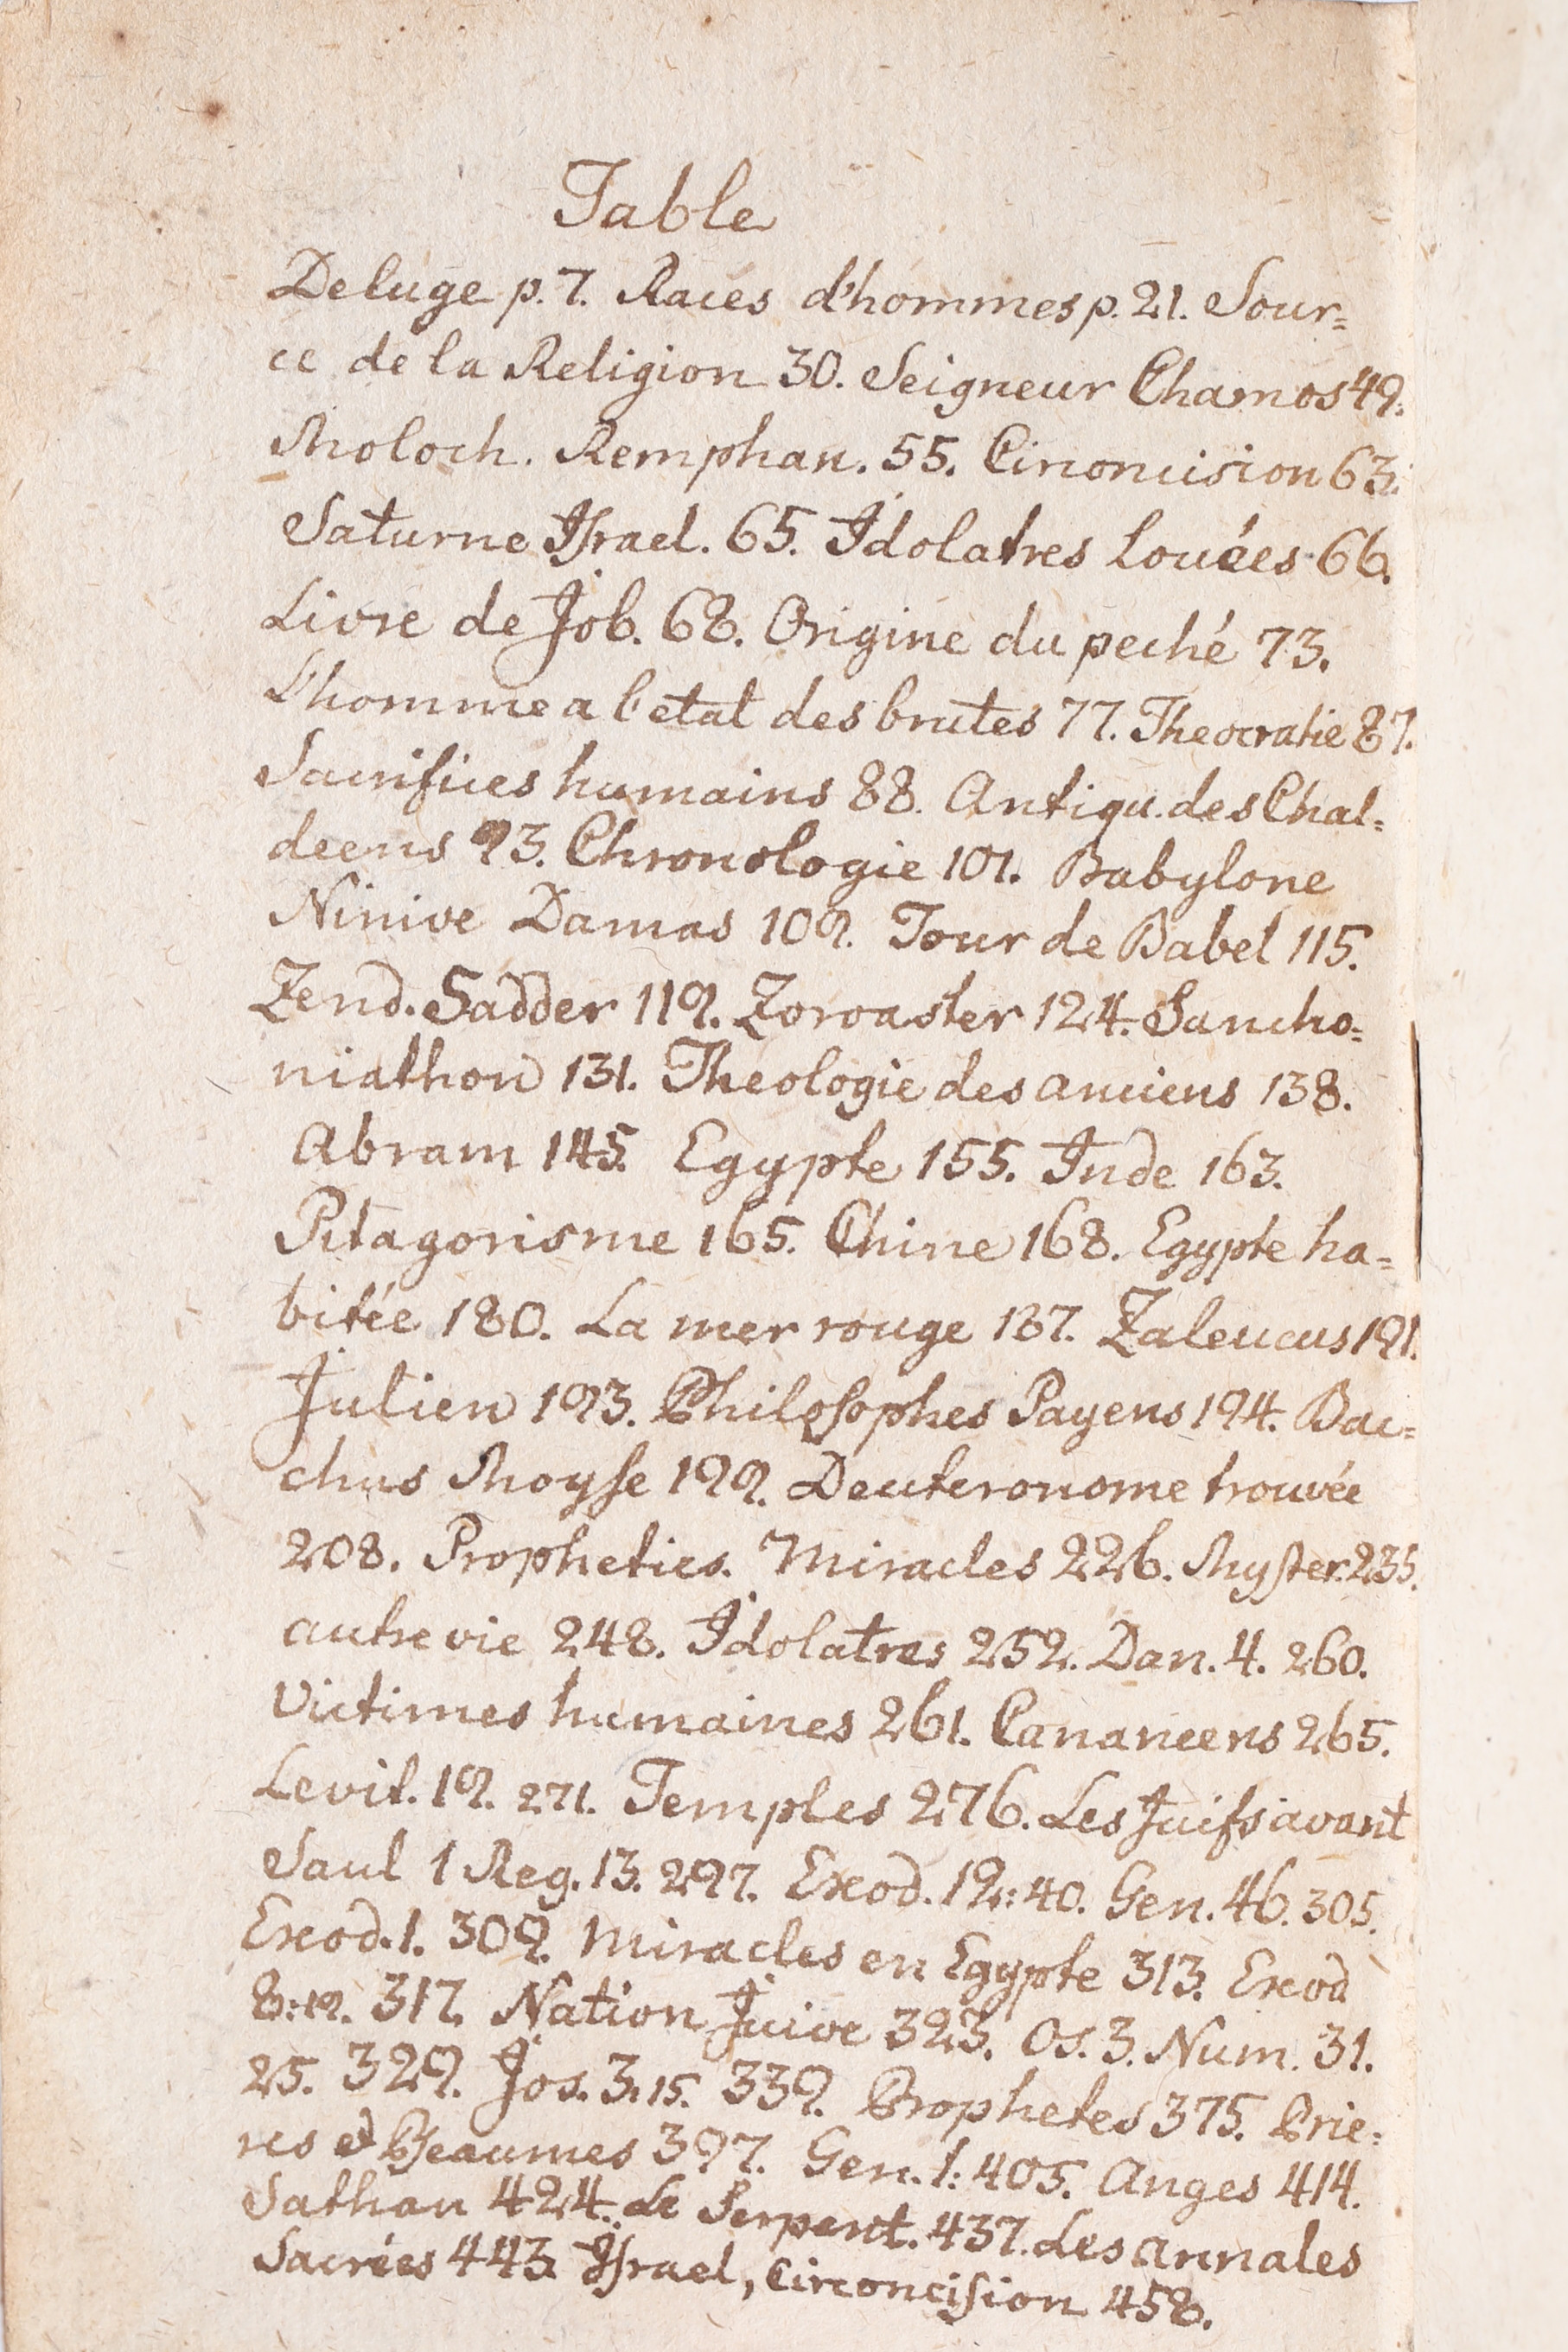 Table
Deluge p. 7. Races d'hommes p. 21. Sour=
ce de la Religion 30. Seigneur Chamos 49.
Moloch. Remphan. 55. Cirioncision 63.
Saturne Israel. 65. Idolatres Louées 66.
Livre de Job. 68. Origine du peché 73.
L'homme a l'etat des brutes 77. Theocratie 87.
Sacrifices humains 88. Antiqu. des Chal=
deens 93. Chronologie 101. Babylone
Ninive Damas 109. Tour de Babel 115.
Zend. Sadder 119. Zoroaster 124. Sancho=
niathon 131. Theologie des anciens 138.
Abram 145. Egypte 155. Inde 163.
Pitagorisme 165. Chine 168. Egypte ha=
bitée 180. La mer rouge 187. Zaleucus 191.
Julien 193. Philosophes Payens 194. Bac=
chus Moyse 199. Deuteronome trouvée
208. Propheties. Miracles 226. Myster. 235.
autre vie 248. Idolatres 252. Dan. 4. 260.
Victimes humaines 261. Cananeens 265.
Levit. 19. 271. Temples 276. Les Juifs avant
Saul 1 Reg. 13. 297. Exod. 12:40. Gen. 46. 305.
Exod. 1. 309. Miracles en Egypte 313. Exod
8:19. 317. Nation Juive 323. Os. 3. Num. 31.
25. 329. Jos. 3. 15. 339. Prophetes 375. Prie=
res et Pseaumes 397. Gen. 1: 405. Anges 414.
Sathan 424. Le Serpent. 437. Les annales
Sacrées 443. Israel, Circoncision 458.